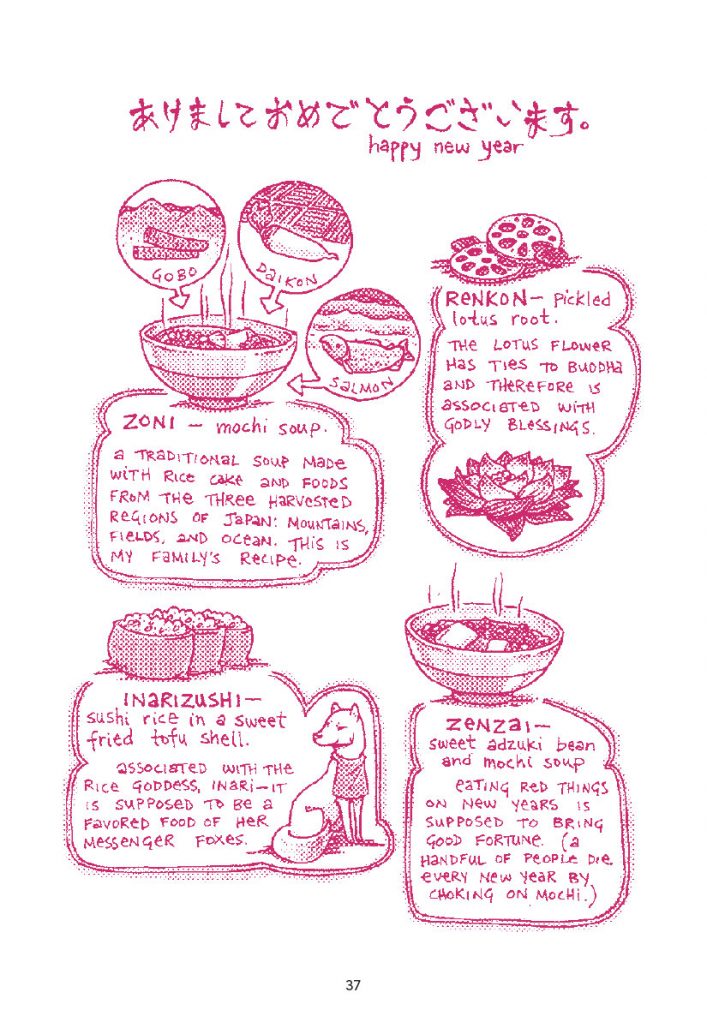 あけましておめでとうございます。
happy new year
GOBO
DAIKON
SALMON
ZONI — mochi soup.
A TRADITIONAL SOUP MADE
WITH RICE CAKE AND FOODS
FROM THE THREE HARVESTED
REGIONS OF JAPAN: MOUNTAINS,
FIELDS, AND OCEAN. THIS IS
MY FAMILY'S RECIPE.
RENKON — pickled
lotus root.
THE LOTUS FLOWER
HAS TIES TO BUDDHA
AND THEREFORE IS
ASSOCIATED WITH
GODLY BLESSINGS.
INARIZUSHI —
sushi rice in a sweet
fried tofu shell.
ASSOCIATED WITH THE
RICE GODDESS, INARI—IT
IS SUPPOSED TO BE A
FAVORED FOOD OF HER
MESSENGER FOXES.
ZENZAI —
sweet adzuki bean
and mochi soup
EATING RED THINGS
ON NEW YEARS IS
SUPPOSED TO BRING
GOOD FORTUNE. (A
HANDFUL OF PEOPLE DIE
EVERY NEW YEAR BY
CHOKING ON MOCHI.)
37